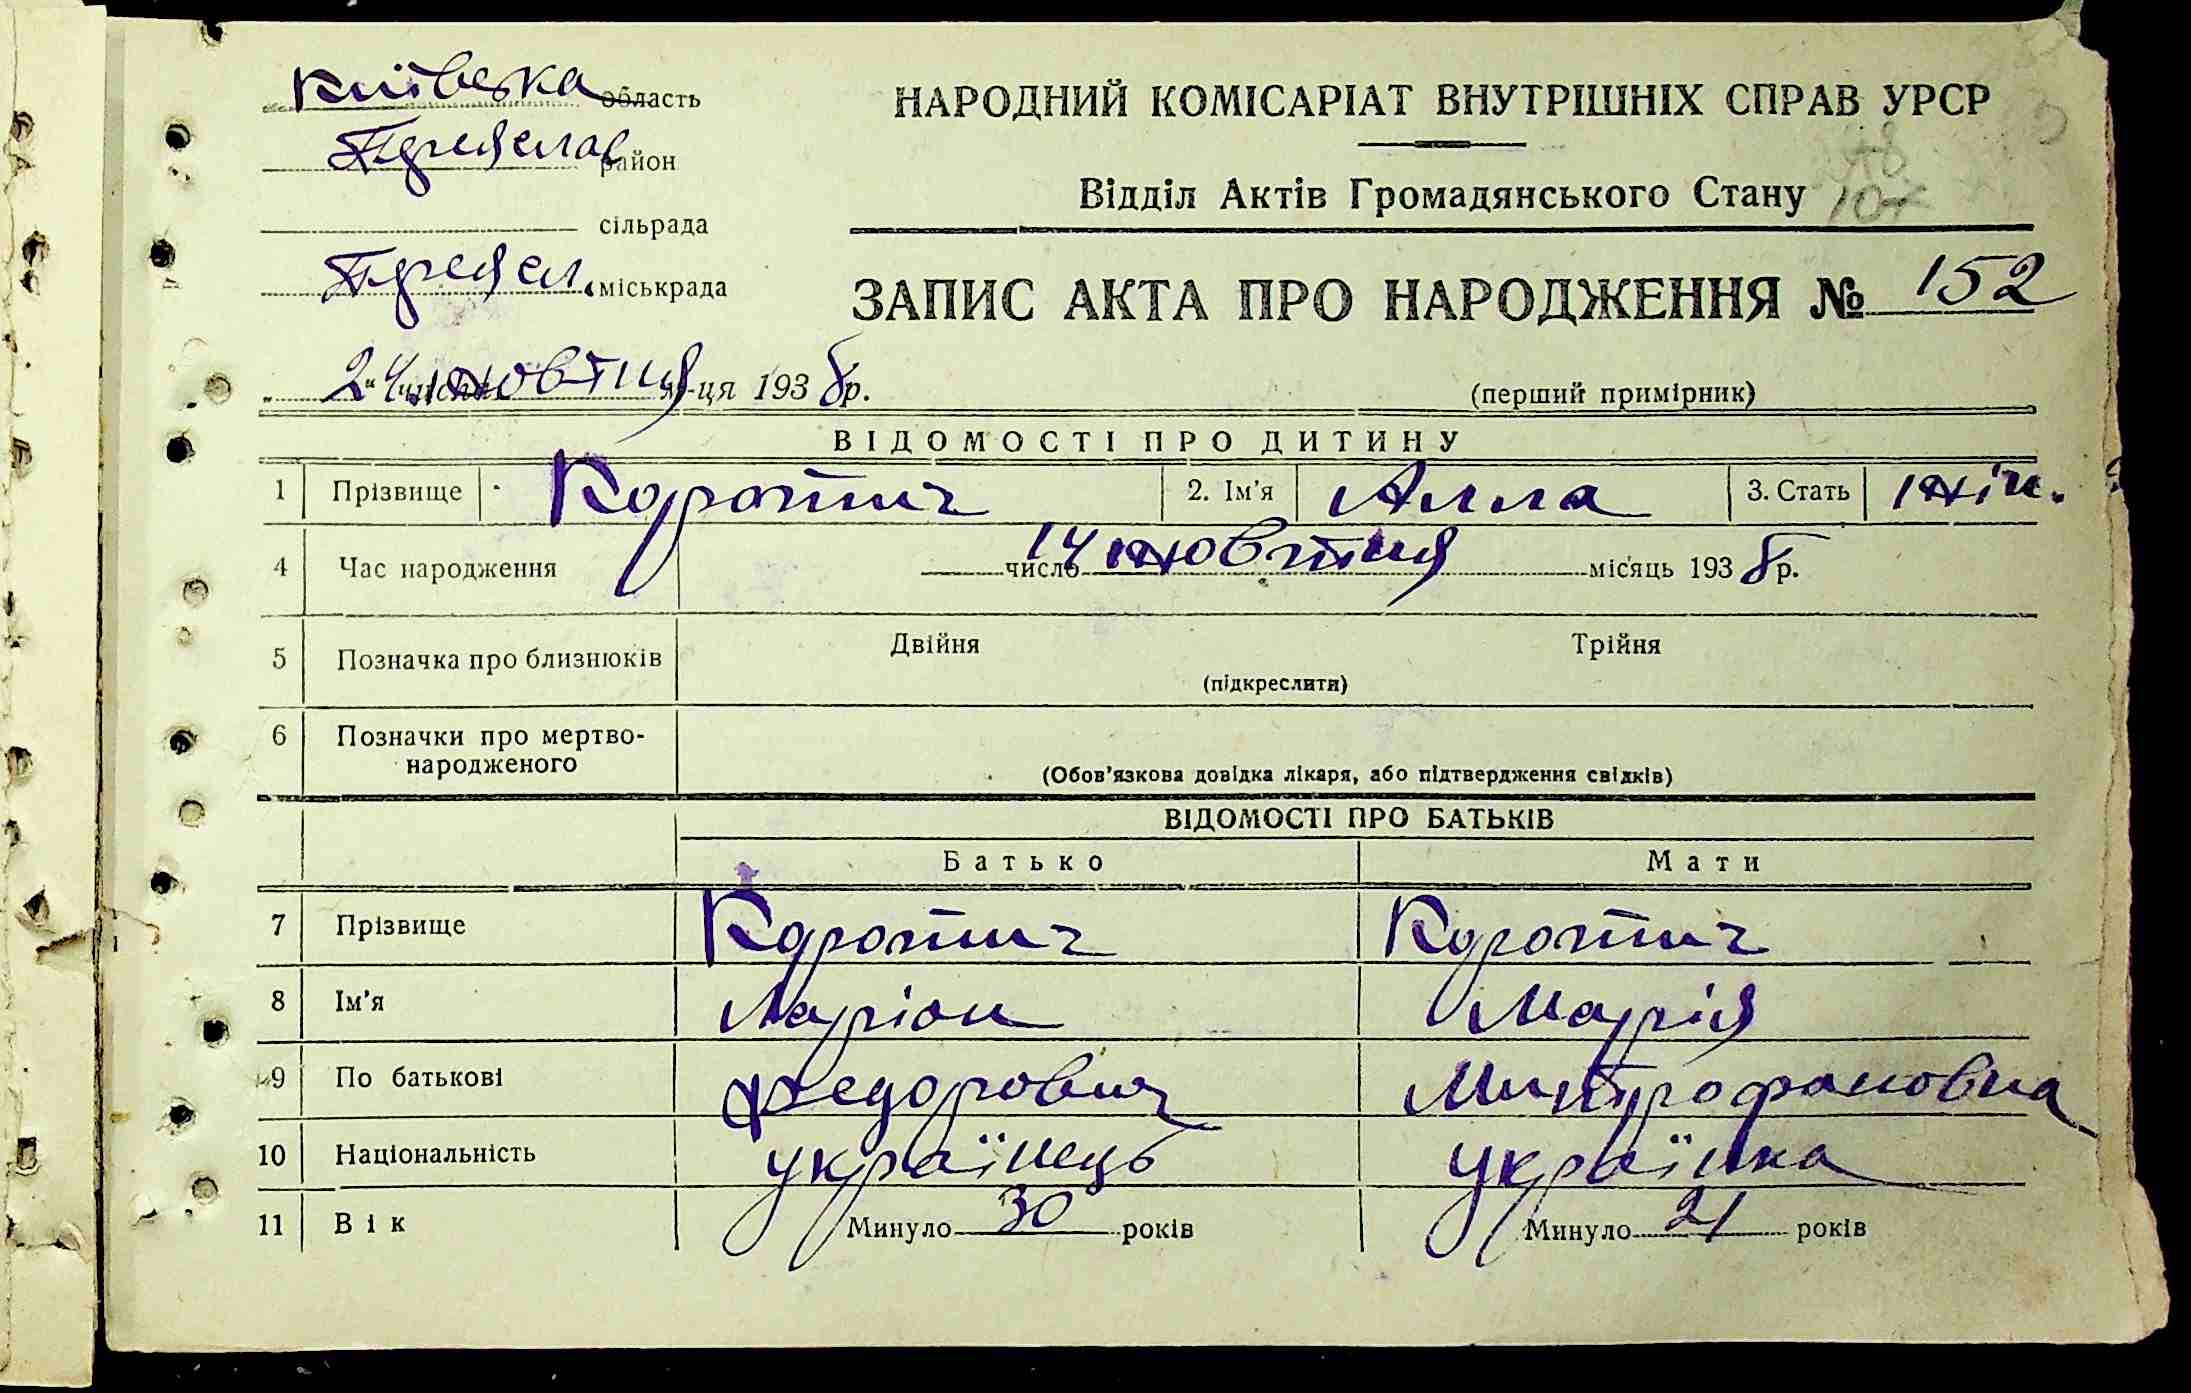 Київська область
НАРОДНИЙ КОМІСАРІАТ ВНУТРІШНІХ СПРАВ УРСР
Переяслав район
Відділ Актів Громадянського Стану 107
сільрада
Переясл. міськрада
ЗАПИС АКТА ПРО НАРОДЖЕННЯ № 152
„24“ числа жовтня м-ця 1938 р.
(перший примірник)
ВІДОМОСТІ ПРО ДИТИНУ
1 Прізвище Коротич 2. Ім'я Алла 3. Стать жін.
4 Час народження 14 число жовтня місяць 1938 р.
5 Позначка про близнюків Двійня Трійня
(підкреслити)
6 Позначки про мертво-
народженого
(Обов'язкова довідка лікаря, або підтвердження свідків)
ВІДОМОСТІ ПРО БАТЬКІВ
Батько Мати
7 Прізвище Коротич Коротич
8 Ім'я Ларіон Марія
9 По батькові Федорович Митрофановна
10 Національність українець українка
11 Вік Минуло 30 років Минуло 21 років